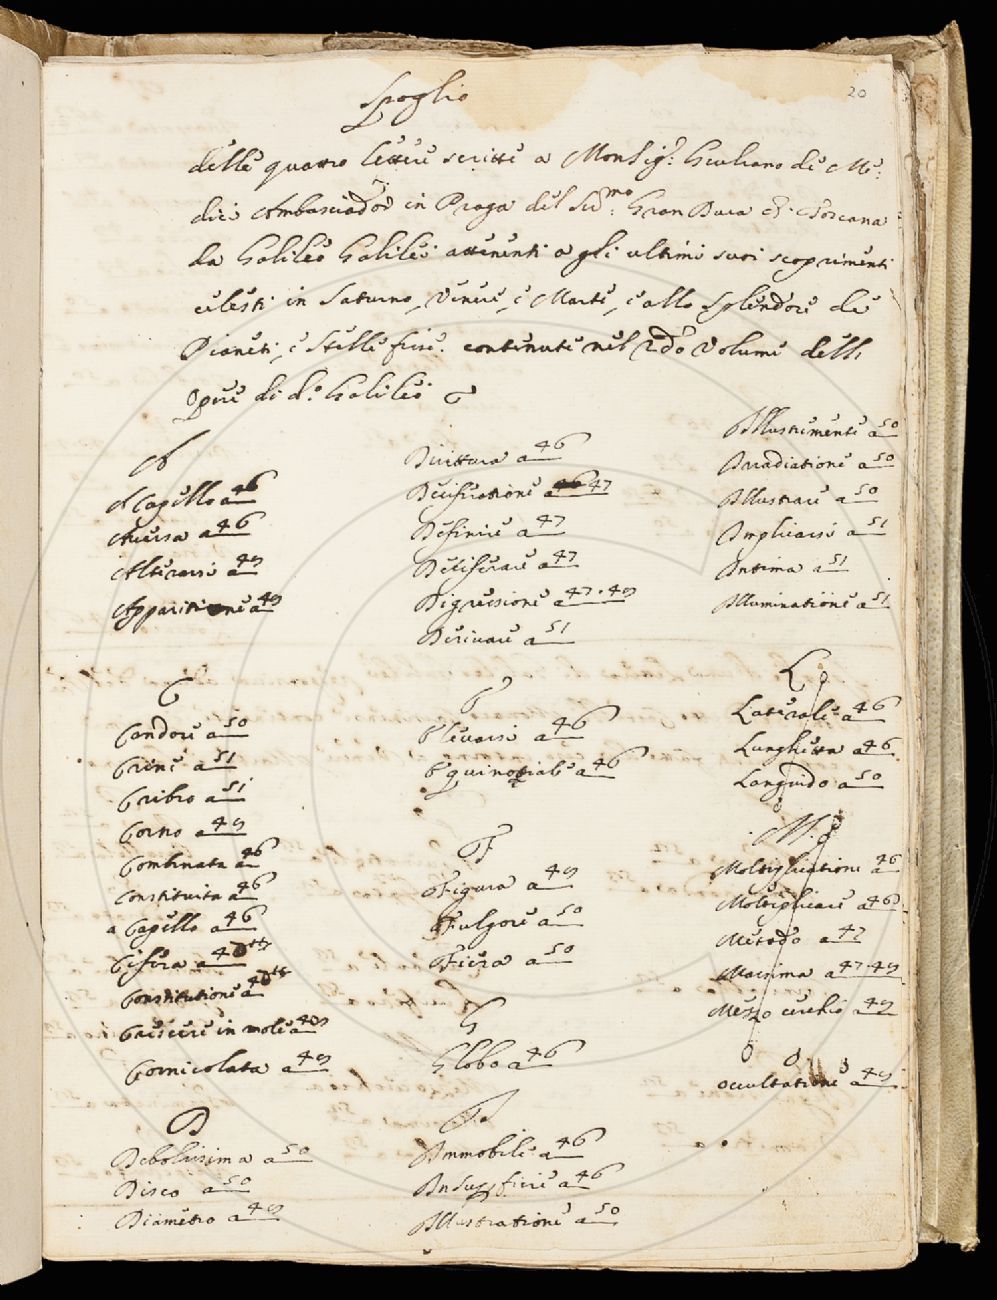 20
Spoglio
delle quattro lettere scritte a Monsig.r Giuliano de Me:
dici Ambasciador in Praga del Ser.mo Gran Duca di Toscana
da Galileo Galilei attenenti a gli ultimi suoi scoprimenti
celesti in Saturno, Venere, e Marte, e allo splendore de
Pianeti, e Stelle fisse. contenute nel 2do Volume dell'
opere di d.o Galileo
A
A Capello a 46
Aversa a 46
Alterarsi a 49
Apparitione a 49
C
Candore a 50
Crine a 51
Cribro a 51
Corno a 49
Combinata a 46
Constituita a 46
a Capello a 46
Cifera a 46
Constitutione a 46
Crescere in mole a 49
Cornicolata a 49
D
Debolissima a 50
Disco a 50
Diametro a 49
Dirittura a 46
Deciferatione a 47
Definire a 47
Deciferare a 47
Digressione a 47. 49
Derivare a 51
E
Elevarsi a 46
Equinotiale a 46
F
Figura a 49
Fulgore a 50
Fiera a 50
G
Globo a 46
I
Immobile a 46
Insuperfice a 46
Illustratione a 50
Illustremente a 50
Irradiatione a 50
Illustrare a 50
Implicarsi a 51
Intima a 51
Illuminatione a 51
L
Laterale a 46
Lunghetta a 46
Languido a 50
M
Moltiplicatione a 46
Moltiplicare a 46
Metodo a 47
Massima a 47. 49
Mezzo cerchio a 49
O
Occultatione a 49